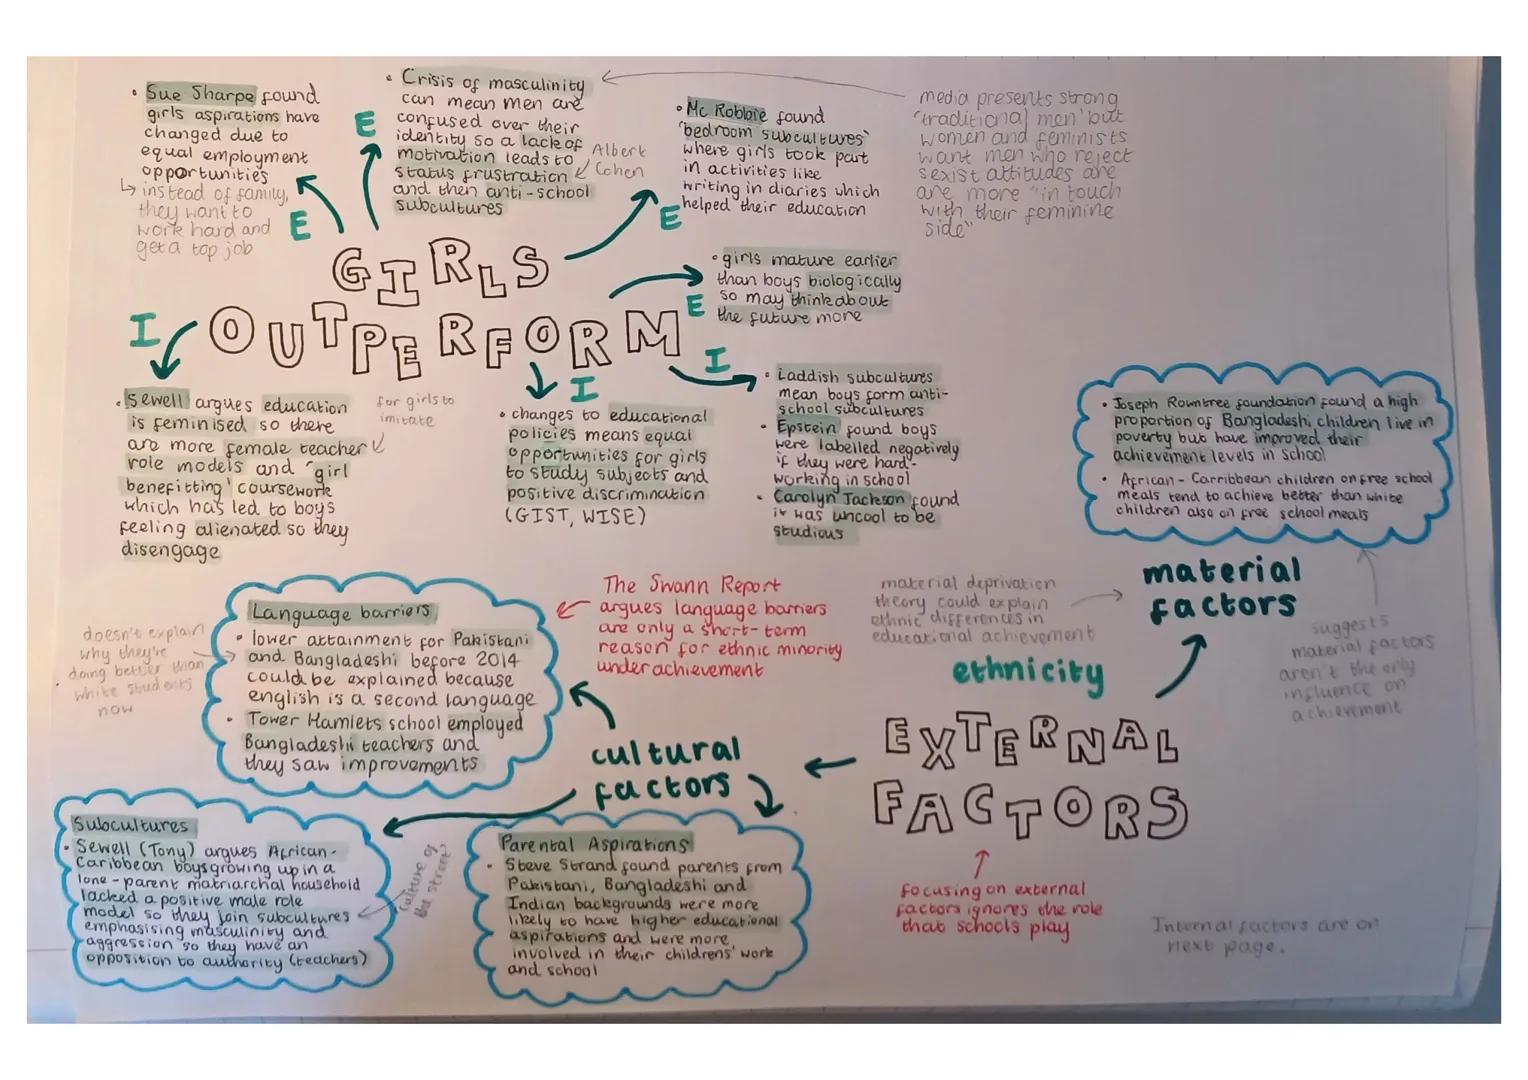 • Sue Sharpe found
girls aspirations have
changed due to
equal employment
opportunities
↳ instead of family,
they want to
work hard and
get a top job
E
• Crisis of masculinity
can mean men are
confused over their
identity so a lack of
motivation leads to
status frustration
and then anti-school
subcultures
Albert
Cohen
E
• Mc Robbie found
'bedroom subcultures'
where girls took part
in activities like
writing in diaries which
helped their education
E
media presents strong
'traditional men' but
women and feminists
want men who reject
sexist attitudes are
are more "in touch
with their feminine
side"
GIRLS
OUTPERFORM
• girls mature earlier
than boys biologically
so may think about
the future more
E
I
• Sewell argues education
is feminised so there
are more female teacher
role models and 'girl
benefitting' coursework
which has led to boys
feeling alienated so they
disengage
for girls to
imitate
I
• changes to educational
policies means equal
opportunities for girls
to study subjects and
positive discrimination
(GIST, WISE)
I
• Laddish subcultures
mean boys form anti-
school subcultures
• Epstein found boys
were labelled negatively
if they were hard-
working in school
• Carolyn Jackson found
it was uncool to be
studious
• Joseph Rowntree foundation found a high
proportion of Bangladeshi children live in
poverty but have improved their
achievement levels in school
• African - Carribbean children on free school
meals tend to achieve better than white
children also on free school meals
material
factors
suggests
material factors
aren't the only
influence on
achievement
material deprivation
theory could explain
ethnic differences in
educational achievement
ethnicity
EXTERNAL
FACTORS
The Swann Report
argues language barriers
are only a short-term
reason for ethnic minority
underachievement
Language barriers
• lower attainment for Pakistani
and Bangladeshi before 2014
could be explained because
english is a second language
• Tower Hamlets school employed
Bangladeshi teachers and
they saw improvements
doesn't explain
why they're
doing better than
white students
now
cultural
factors
Subcultures
• Sewell (Tony) argues African-
Caribbean boys growing up in a
lone-parent matriarchal household
lacked a positive male role
model so they join subcultures
emphasising masculinity and
aggression so they have an
opposition to authority (teachers)
'culture of
the street'
Parental Aspirations
• Steve Strand found parents from
Pakistani, Bangladeshi and
Indian backgrounds were more
likely to have higher educational
aspirations and were more
involved in their childrens' work
and school
focusing on external
factors ignores the role
that schools play
Internal factors are on
next page.